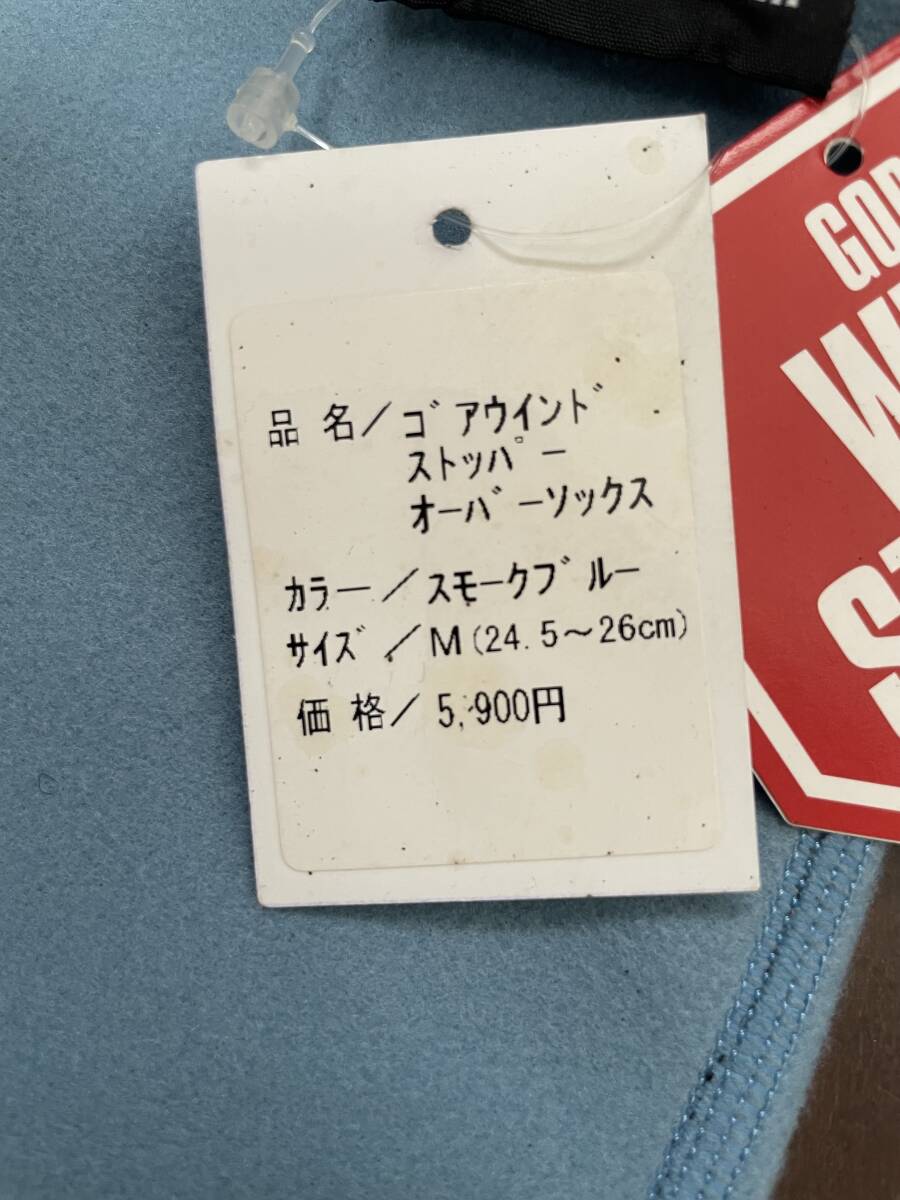 品 名／ゴアウインド
ストッパー
オーバーソックス
カラー／スモークブルー
サイズ／M(24.5～26cm)
価 格／ 5,900円